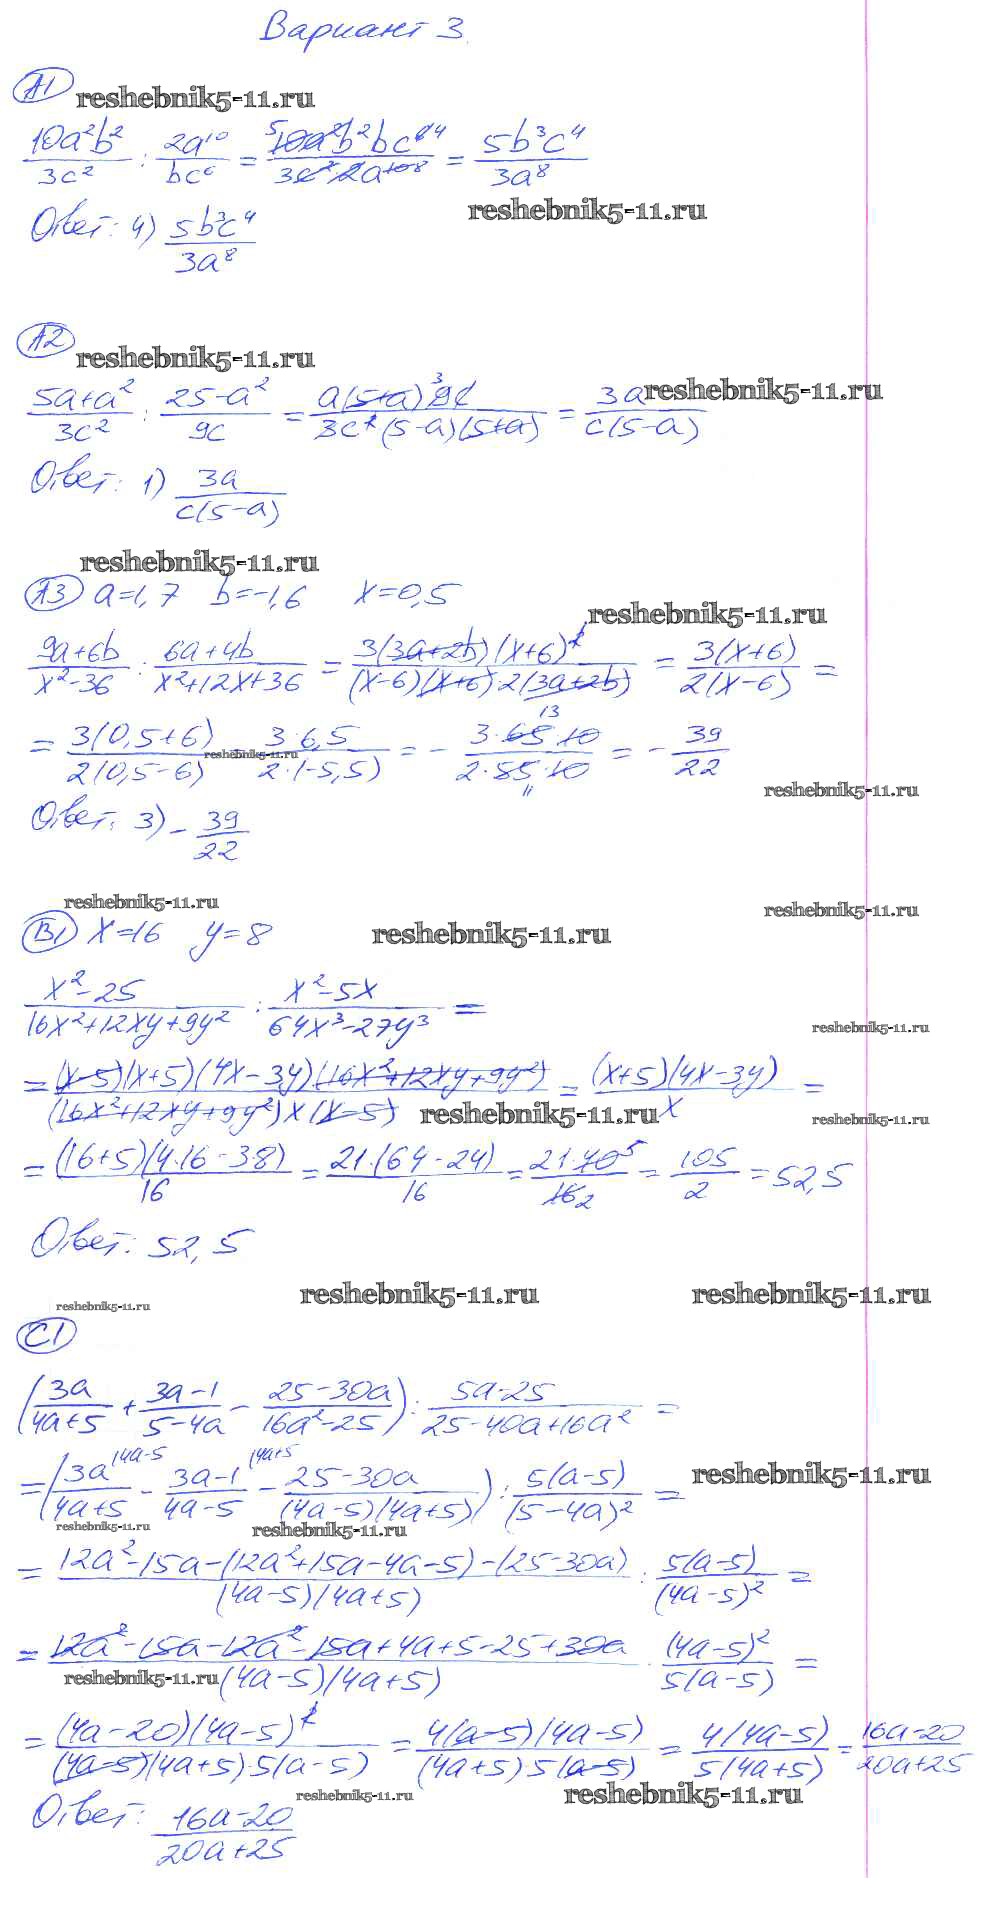 Вариант 3.
А1 reshebnik5-11.ru
10a²b²/3c² : 2a¹⁰/bc⁶ = 10a²b²bc⁶/3c²·2a¹⁰ = 5b³c⁴/3a⁸
reshebnik5-11.ru
Ответ: 4) 5b³c⁴/3a⁸
А2 reshebnik5-11.ru
reshebnik5-11.ru
5a+a²/3c² : 25-a²/9c = a(5+a)9c/3c²(5-a)(5+a) = 3a/c(5-a)
Ответ: 1) 3a/c(5-a)
reshebnik5-11.ru
А3 a=1,7 b=-1,6 x=0,5
reshebnik5-11.ru
9a+6b/x²-36 : 6a+4b/x²+12x+36 = 3(3a+2b)(x+6)²/(x-6)(x+6)2(3a+2b) = 3(x+6)/2(x-6) =
= 3(0,5+6)/2(0,5-6) reshebnik5-11.ru 3·6,5/2·(-5,5) = - 3·65·10/2·55·10 = - 39/22
reshebnik5-11.ru
Ответ: 3) - 39/22
reshebnik5-11.ru reshebnik5-11.ru
В1 x=16 y=8 reshebnik5-11.ru
x²-25/16x²+12xy+9y² : x²-5x/64x³-27y³ =
reshebnik5-11.ru
= (x-5)(x+5)(4x-3y)(16x²+12xy+9y²)/(16x²+12xy+9y²)x(x-5) = (x+5)(4x-3y)/x =
reshebnik5-11.ru reshebnik5-11.ru
= (16+5)(4·16-3·8)/16 = 21·(64-24)/16 = 21·40/16 = 105/2 = 52,5
Ответ: 52,5
reshebnik5-11.ru reshebnik5-11.ru reshebnik5-11.ru
С1
(3a/4a+5 + 3a-1/5-4a - 25-30a/16a²-25) : 5a-25/25-40a+16a² =
= (3a/4a+5 - 3a-1/4a-5 - 25-30a/(4a-5)(4a+5)) : 5(a-5)/(5-4a)² =
reshebnik5-11.ru
reshebnik5-11.ru reshebnik5-11.ru
= 12a²-15a-(12a²+15a-4a-5)-(25-30a)/(4a-5)(4a+5) : 5(a-5)/(4a-5)² =
= 12a²-15a-12a²-15a+4a+5-25+30a/(4a-5)(4a+5) · (4a-5)²/5(a-5) =
reshebnik5-11.ru
= (4a-20)(4a-5)²/(4a-5)(4a+5)·5(a-5) = 4(a-5)(4a-5)/(4a+5)5(a-5) = 4(4a-5)/5(4a+5) = 16a-20/20a+25
reshebnik5-11.ru reshebnik5-11.ru
Ответ: 16a-20/20a+25